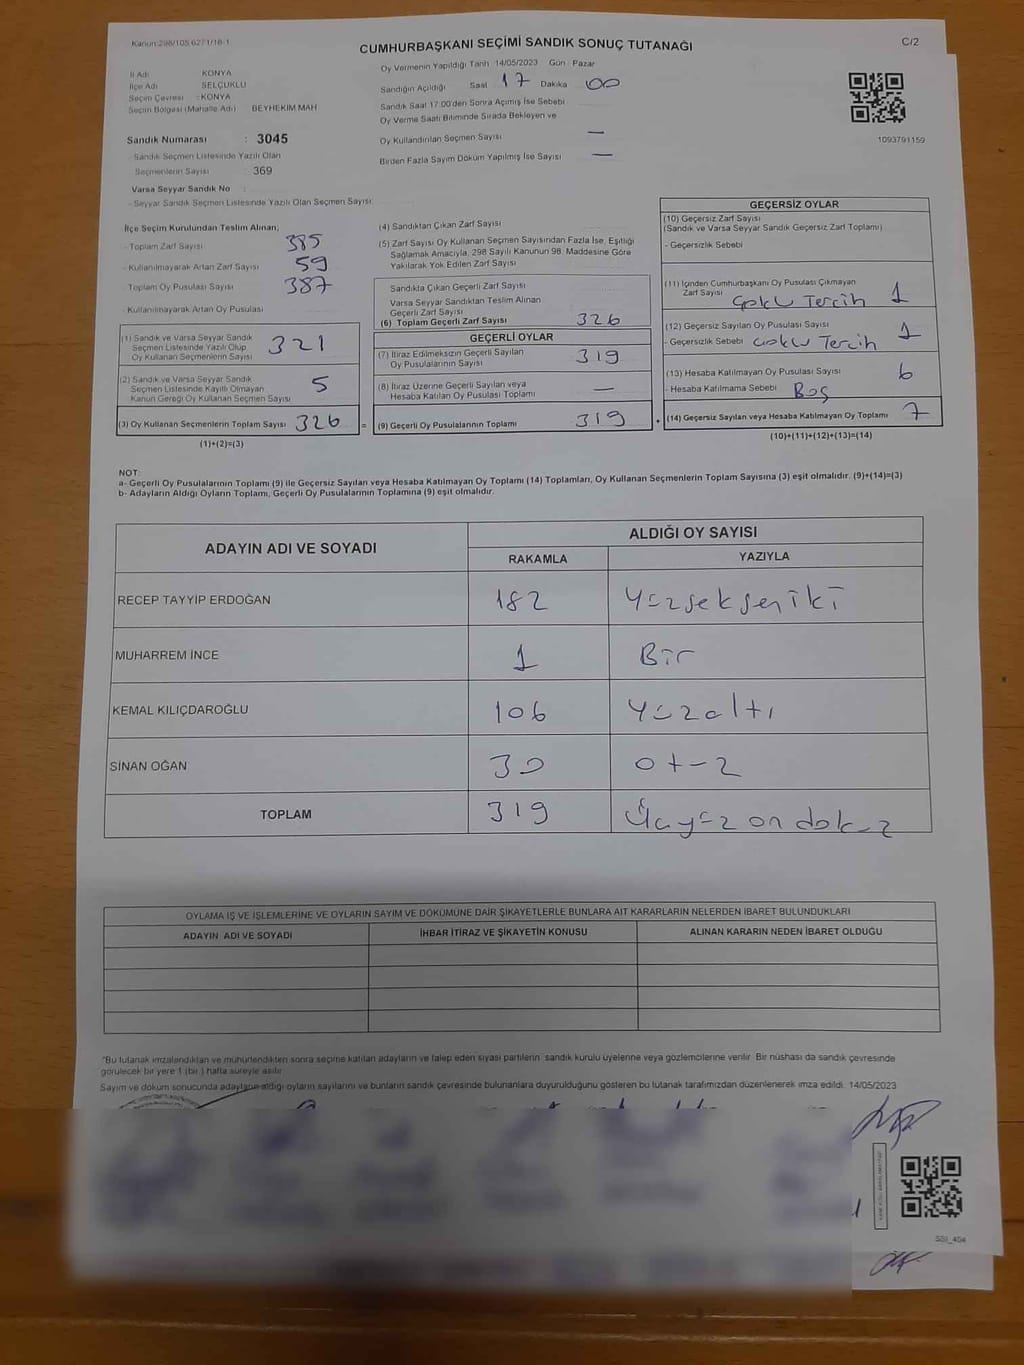 Kanun:298/105 6271/18-1
CUMHURBAŞKANI SEÇİMİ SANDIK SONUÇ TUTANAĞI
C/2
İl Adı KONYA
İlçe Adı SELÇUKLU
Seçim Çevresi : KONYA
Seçim Bölgesi (Mahalle Adı) BEYHEKIM MAH
Oy Vermenin Yapıldığı Tarih 14/05/2023 Gün : Pazar
Sandığın Açıldığı Saat 17 Dakika 00
Sandık Saat 17:00'den Sonra Açımış İse Sebebi
Oy Verme Saati Bitiminde Sırada Bekleyen ve
Oy Kullandırılan Seçmen Sayısı —
Birden Fazla Sayım Döküm Yapılmış İse Sayısı —
1093791159
Sandık Numarası : 3045
- Sandık Seçmen Listesinde Yazılı Olan
Seçmenlerin Sayısı : 369
Varsa Seyyar Sandık No :
- Seyyar Sandık Seçmen Listesinde Yazılı Olan Seçmen Sayısı:
İlçe Seçim Kurulundan Teslim Alınan;
- Toplam Zarf Sayısı 385
- Kullanılmayarak Artan Zarf Sayısı 59
- Toplam Oy Pusulası Sayısı 387
- Kullanılmayarak Artan Oy Pusulası
(1) Sandık ve Varsa Seyyar Sandık
Seçmen Listesinde Yazılı Olup
Oy Kullanan Seçmenlerin Sayısı 321
(2) Sandık ve Varsa Seyyar Sandık
Seçmen Listesinde Kayıtlı Olmayan
Kanun Gereği Oy Kullanan Seçmen Sayısı 5
(3) Oy Kullanan Seçmenlerin Toplam Sayısı 326 =
(1)+(2)=(3)
(4) Sandıktan Çıkan Zarf Sayısı
(5) Zarf Sayısı Oy Kullanan Seçmen Sayısından Fazla İse, Eşitliği
Sağlamak Amacıyla, 298 Sayılı Kanunun 98. Maddesine Göre
Yakılarak Yok Edilen Zarf Sayısı
Sandıkta Çıkan Geçerli Zarf Sayısı
Varsa Seyyar Sandıktan Teslim Alınan
Geçerli Zarf Sayısı
(6) Toplam Geçerli Zarf Sayısı 326
GEÇERLİ OYLAR
(7) İtiraz Edilmeksizin Geçerli Sayılan
Oy Pusulasının Sayısı 319
(8) İtiraz Üzerine Geçerli Sayılan veya
Hesaba Katılan Oy Pusulası Toplamı —
(9) Geçerli Oy Pusulalarının Toplamı 319 +
GEÇERSİZ OYLAR
(10) Geçersiz Zarf Sayısı
(Sandık ve Varsa Seyyar Sandık Geçersiz Zarf Toplamı)
- Geçersizlik Sebebi
(11) İçinden Cumhurbaşkanı Oy Pusulası Çıkmayan
Zarf Sayısı Çoklu Tercih 1
(12) Geçersiz Sayılan Oy Pusulası Sayısı 1
- Geçersizlik Sebebi Çoklu Tercih
(13) Hesaba Katılmayan Oy Pusulası Sayısı 6
- Hesaba Katılmama Sebebi Boş
(14) Geçersiz Sayılan veya Hesaba Katılmayan Oy Toplamı 7
(10)+(11)+(12)+(13)=(14)
NOT:
a- Geçerli Oy Pusulalarının Toplamı (9) ile Geçersiz Sayılan veya Hesaba Katılmayan Oy Toplamı (14) Toplamları, Oy Kullanan Seçmenlerin Toplam Sayısına (3) eşit olmalıdır. (9)+(14)=(3)
b- Adayların Aldığı Oyların Toplamı, Geçerli Oy Pusulalarının Toplamına (9) eşit olmalıdır.
ADAYIN ADI VE SOYADI
ALDIĞI OY SAYISI
RAKAMLA YAZIYLA
RECEP TAYYİP ERDOĞAN 182 Yüzsekseniki
MUHARREM İNCE 1 Bir
KEMAL KILIÇDAROĞLU 106 Yüzaltı
SİNAN OĞAN 30 Otuz
TOPLAM 319 Üçyüzondokuz
OYLAMA İŞ VE İŞLEMLERİNE VE OYLARIN SAYIM VE DÖKÜMÜNE DAİR ŞİKAYETLERLE BUNLARA AİT KARARLARIN NELERDEN İBARET BULUNDUKLARI
ADAYIN ADI VE SOYADI İHBAR İTİRAZ VE ŞİKAYETİN KONUSU ALINAN KARARIN NEDEN İBARET OLDUĞU
"Bu tutanak imzalandıktan ve mühürlendikten sonra seçime katılan adayların ve talep eden siyasi partilerin sandık kurulu üyelerine veya gözlemcilerine verilir. Bir nüshası da sandık çevresinde
görülecek bir yere 1 (bir) hafta süreyle asılır.
Sayım ve döküm sonucunda adayların aldığı oyların sayılarını ve bunların sandık çevresinde bulunanlara duyurulduğunu gösteren bu tutanak tarafımızdan düzenlenerek imza edildi. 14/05/2023
SSI_404